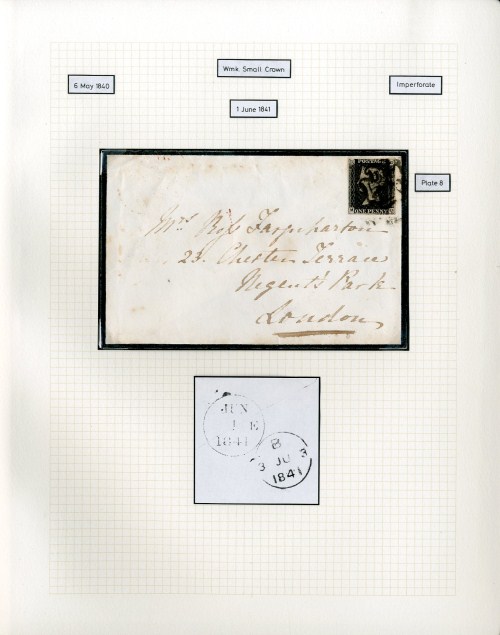 Wmk. Small Crown
6 May 1840
Imperforate
1 June 1841
Plate 8
POSTAGE
ONE PENNY
Mrs Farquharson
23. Chester Terrace
Regent's Park
London
JUN
1 E
1841
B
3 JU 3
1841